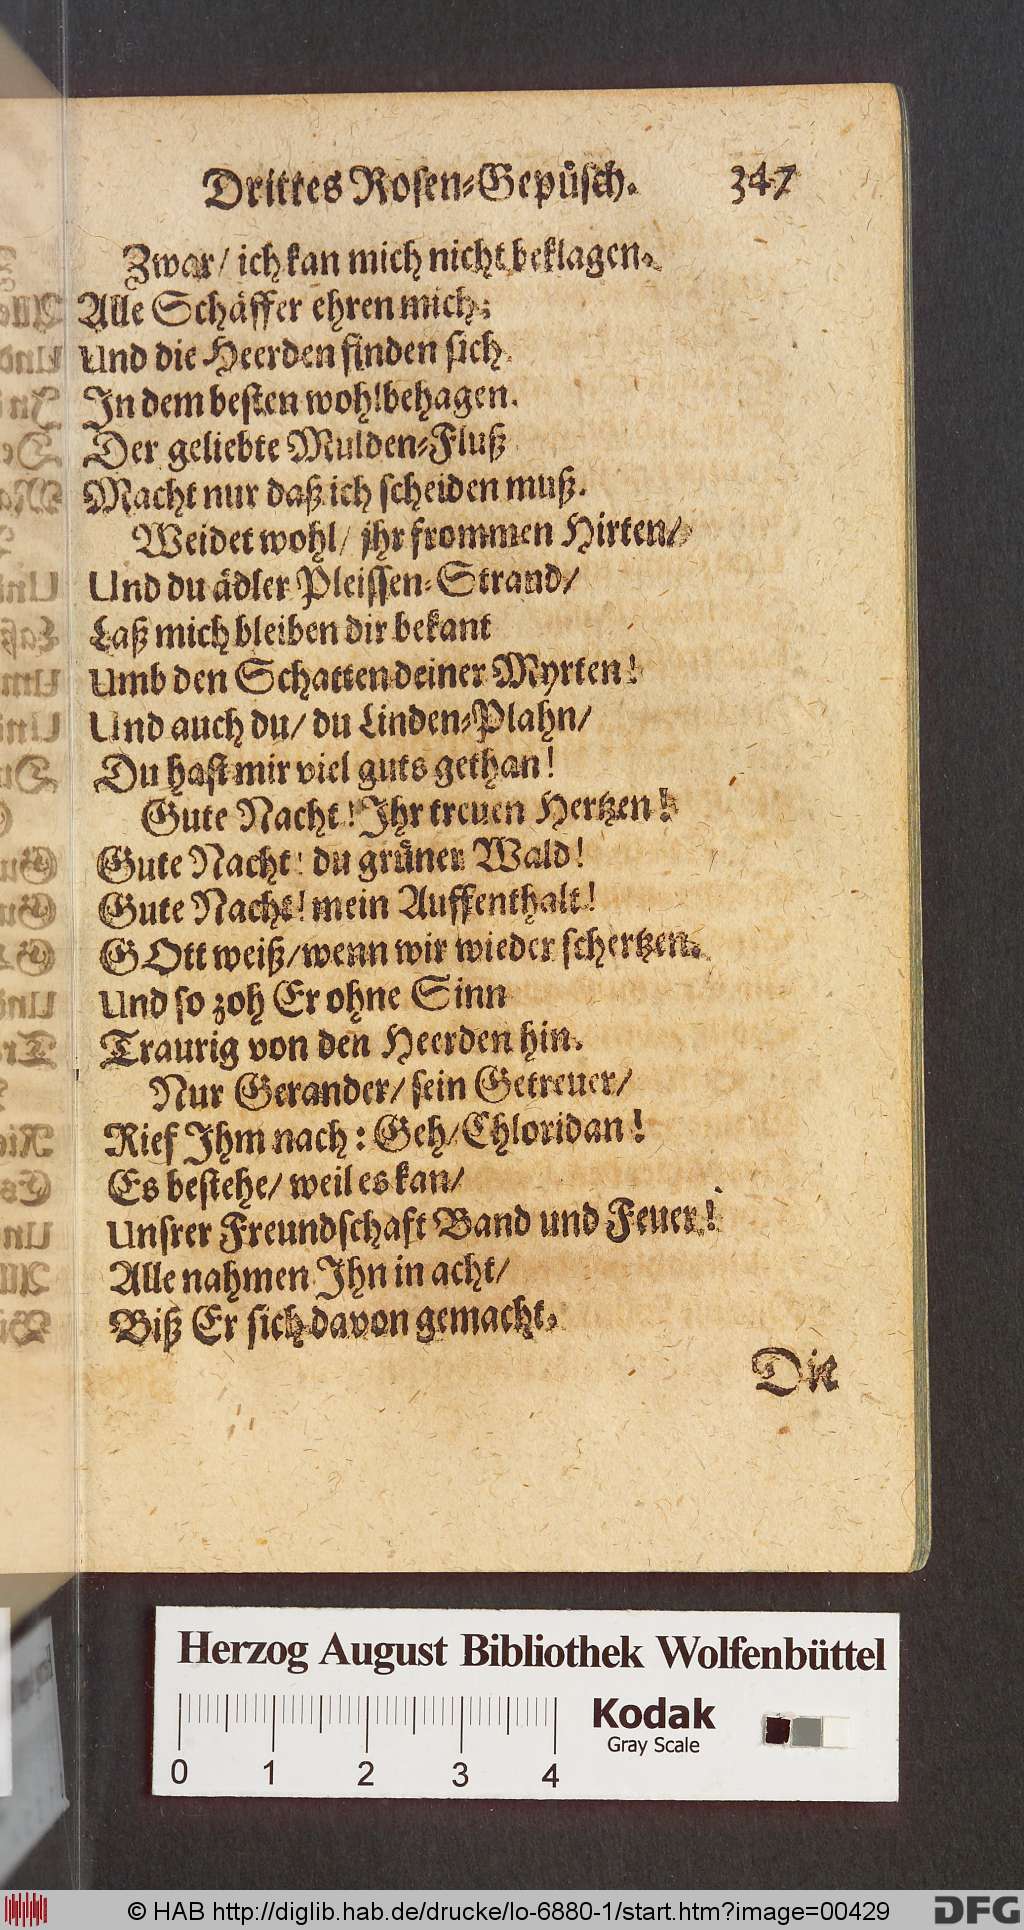 Drittes Rosen-Gepüsch. 347
Zwar/ ich kan mich nicht beklagen.
Alle Schäffer ehren mich;
Und die Heerden finden sich
In dem besten wohlbehagen.
Der geliebte Mulden-Fluß
Macht nur daß ich scheiden muß.
Weidet wohl/ jhr frommen Hirten/
Und du ädler Pleissen-Strand/
Laß mich bleiben dir bekant
Umb den Schatten deiner Myrten!
Und auch du/ du Linden-Plahn/
Du hast mir viel guts gethan!
Gute Nacht! Ihr treuen Hertzen!
Gute Nacht! du grüner Wald!
Gute Nacht! mein Auffenthalt!
GOtt weiß/ wenn wir wieder schertzen.
Und so zoh Er ohne Sinn
Traurig von den Heerden hin.
Nur Gerander/ sein Getreuer/
Rief Ihm nach: Geh/ Chloridan!
Es bestehe/ weil es kan/
Unsrer Freundschaft Band und Feuer!
Alle nahmen Ihn in acht/
Biß Er sich davon gemacht.
Die
Herzog August Bibliothek Wolfenbüttel
Kodak
Gray Scale
0 1 2 3 4
© HAB http://diglib.hab.de/drucke/lo-6880-1/start.htm?image=00429
DFG